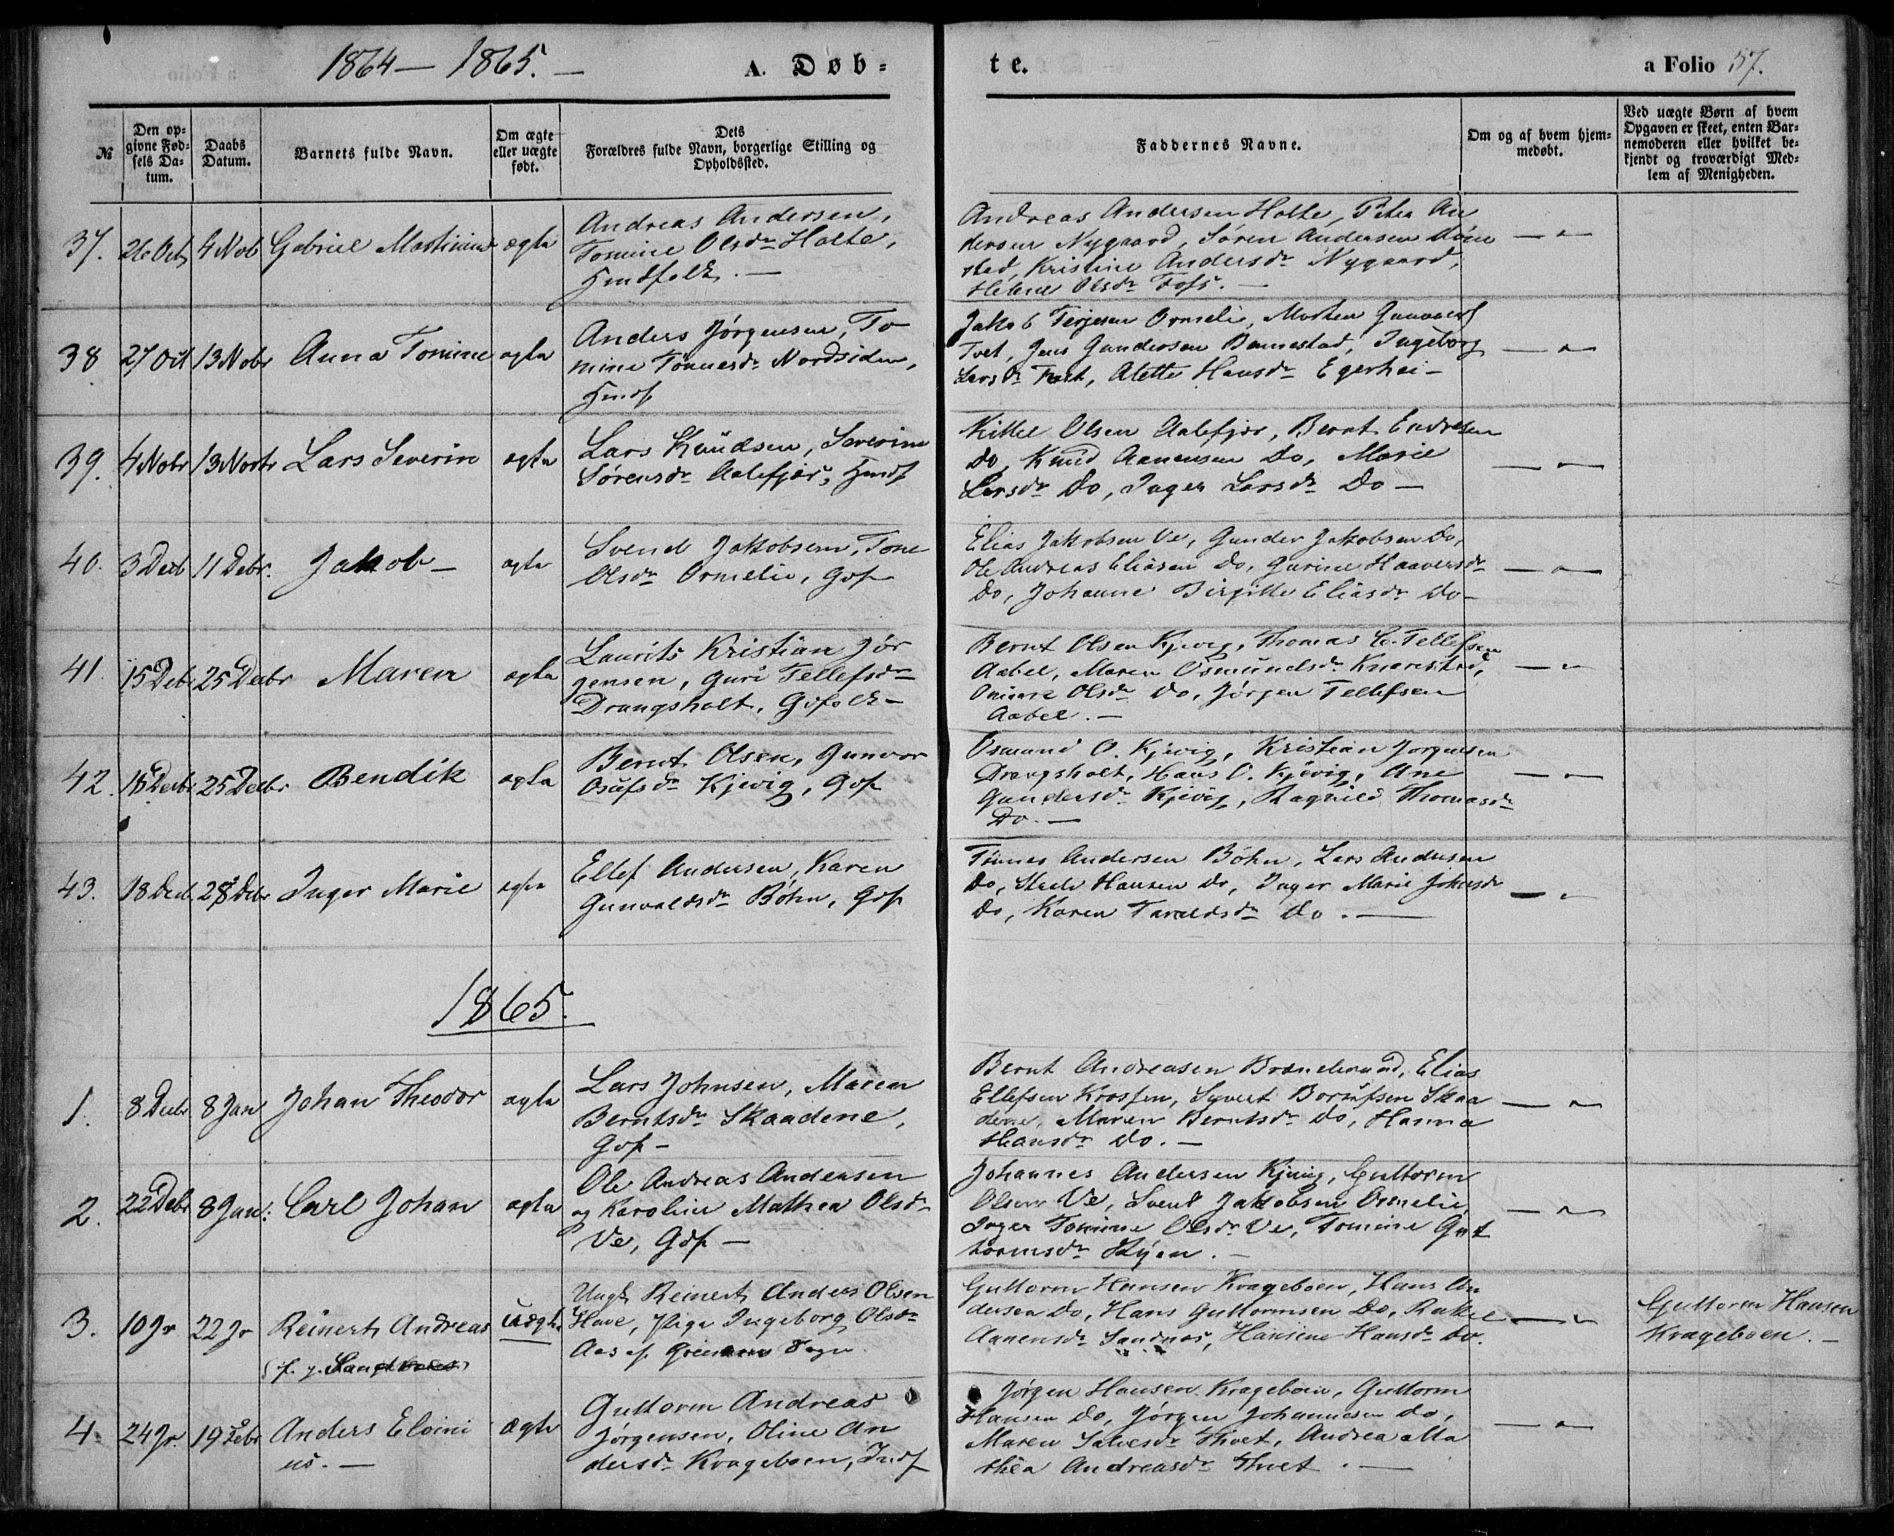 1864 — 1865. —
A. Døb=
te.
a Folio 57.
№
Den op=
givne Fød=
sels Da=
tum.
Daabs
Datum.
Barnets fulde Navn.
Om ægte
eller uægte
født.
Dets
Forældres fulde Navn, borgerlige Stilling og
Opholdssted.
Faddernes Navne.
Om og af hvem hjem=
medøbt.
Ved uægte Børn af hvem
Opgaven er skeet, enten Bar=
nemoderen eller hvilket be=
kjendt og troværdigt Med=
lem af Menigheden.
37. 26 Oct 4 Nob Gabriel Martinius ægta
Andreas Andersen,
Tomine Olsdr Holte,
Huusfolk. —
Andreas Andersen Holte, Peter An
dersen Nygaard, Søren Andersen Døne
stad, Kristine Andersdr Nygaard,
Helene Olsdr Foss. —
38 27 Oct 13 Nobr Anna Tomine ægta
Anders Jørgensen, To
mine Tønnesdr Nordsiden,
Huusf
Jakob Terjesen Ormelie, Morten Gunvaldsen
Tvet, Jens Gundersen Bennestad, Ingeborg
Larsdr Tvet, Alette Hansdr Egerhei —
39. 4 Nobr 13 Nobr Lars Severin ægta
Lars Knudsen, Severine
Sørensdr Aalefjær, Huusf
Kittel Olsen Aalefjær, Bernt Endresen
Do, Knud Aanensen Do, Marie
Larsdr Do, Inger Larsdr Do —
40. 3 Decb 11 Debr. Jakob — ægta
Svend Jakobsen, Tone
Olsdr Ormelie, Gdf
Elias Jakobsen Ve, Gunder Jakobsen Do,
Ole Andreas Eliasen Do, Gurine Haaversdr
Do, Johanne Birgitte Eliasdr Do —
41. 15 Deb 25 Decbr Maren ægta
Laurits Kristian Jør
gensen, Guri Tellefsdr
Drangsholt, Gdfolk —
Bernt Olsen Kjevig, Thomas C. Tellefsen
Aabel, Maren Osmundsdr Knarestad,
Olsdr Do, Jørgen Tellefsen
Aabel. —
42. 16 Decb 25 Decbr Bendik ægta
Bernt Olsen, Gunvor
Osufsdr Kjevig, Gdf
Osmund O. Kjevig, Kristian Jørgensen
Drangsholt, Hans O. Kjevig, Ane
Gundersdr Kjevig, Ragnild Thomasdr
Do. —
43. 18 Decb 28 Debr Inger Marie ægta
Ellef Andersen, Karen
Gunvaldsdr Bøhn, Gdf
Tønnes Andersen Bøhn, Lars Andersen
Do, Hansen Do, Inger Marie Johnsdr
Do, Karen Taraldsdr Do. —
1865.
1. 8 Decbr 8 Jan Johan Theodor ægta
Lars Johnsen, Maren
Berntsdr Skaadene,
Gdf —
Bernt Andreasen Brændemoed, Elias
Ellefsen Krossen, Syvert Borufsen Skaa
dene, Maren Berntsdr Do, Hanna
Hansdr Do. —
2. 22 Debr 8 Jan: Carl Johan ægta
Ole Andreas Andersen
og Karoline Mathea Olsdr
Ve, Gdf —
Johannes Andersen Kjevig, Guttorm
Olsen Ve, Svend Jakobsen Ormelie,
Inger Tomine Olsdr Ve, Tomine Gut
tormsdr Ryen. —
3. 10 Jr 22 Jr Reinert Andreas uægta
Ungk Reinert Anders Olsen
Have, Pige Ingeborg Olsdr
Aas af Greipstad Sogn
Guttorm Hansen Krageboen, Hans An
dersen Do, Hans Guttormsen Do, Rakkel
Aanensdr Sandnes, Hansine Hansdr Do.
Guttorm Hansen
Krageboen. —
4. 24 Jr. 19 Febr Anders Elvini
us. —
ægta
Guttorm Andreas
Jørgensen, Oline An
dersdr Krageboen, Indf
Jørgen Hansen Krageboen, Guttorm
Hansen Do, Jørgen Johannesen Do,
Maren Salvesdr Thvet, Andrea Ma
thea Andreasdr Thvet. —